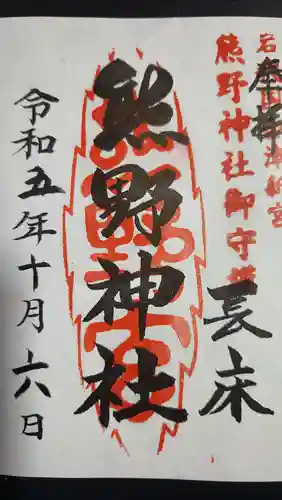 奉拝
熊野神社御守
長床
熊野神社
令和五年十月六日